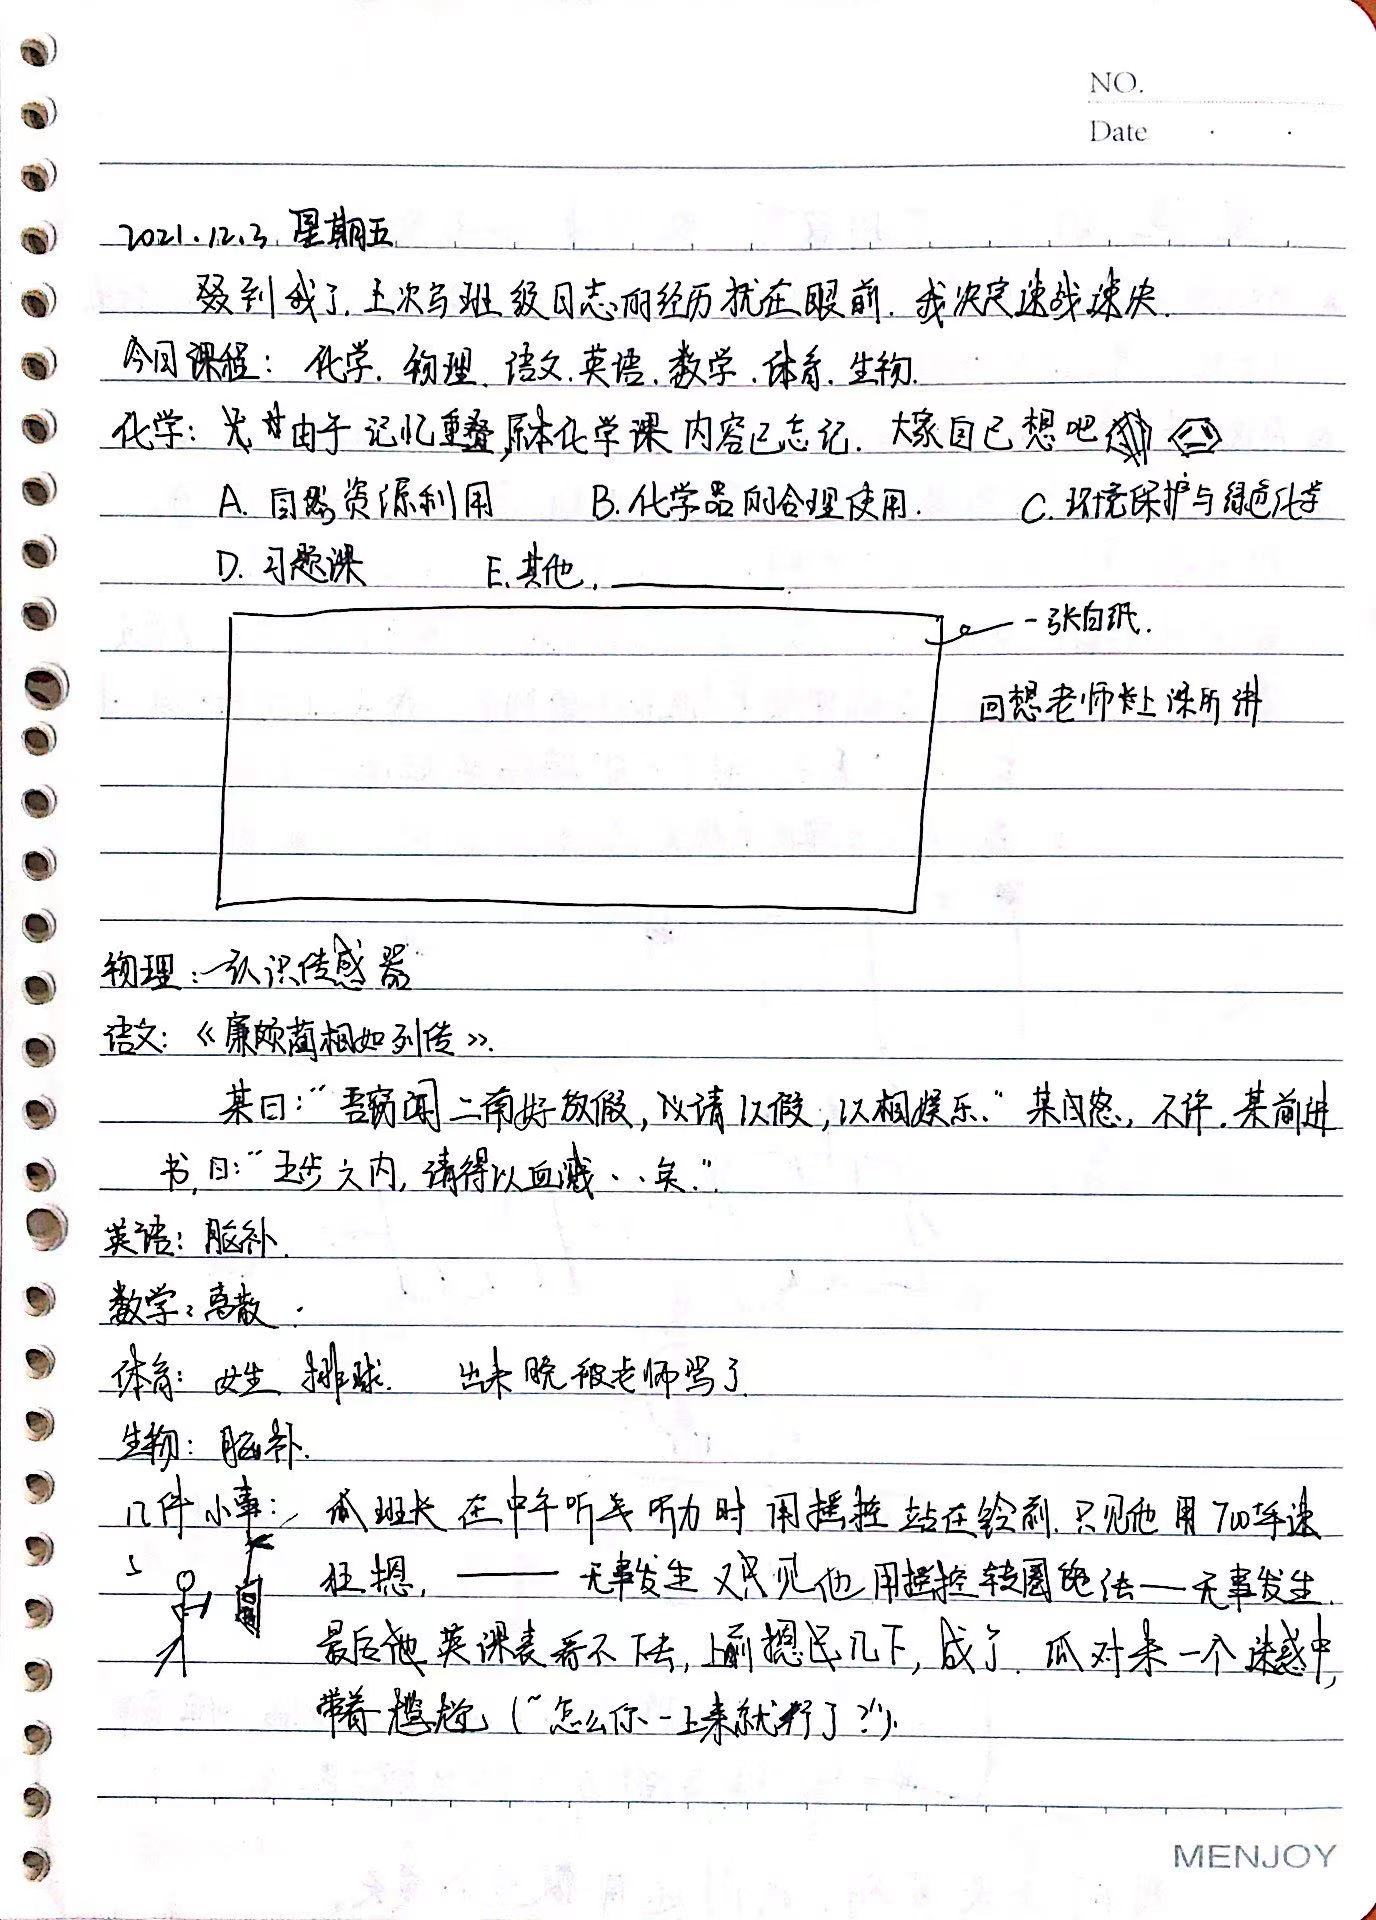 NO.
Date
2021.12.3 星期五
又到我了.上次写班级日志的经历犹在眼前.我决定速战速决.
今日课程：化学.物理.语文.英语.数学.体育.生物.
化学：由于记忆重叠,原本化学课内容已忘记.大家自己想吧
A.自然资源利用 B.化学品的合理使用. C.环境保护与绿色化学
D.习题课 E.其他.
一张白纸.
回想老师上课所讲
物理：认识传感器
语文：《廉颇蔺相如列传》.
某曰：“吾窃闻二南好放假,以请以假,以相娱乐.”某怒,不许.某前进
书,曰：“五步之内,请得以血溅··矣.”
英语：脑补.
数学：离散.
体育：女生 排球. 出来晚被老师骂了
生物：脑补.
几件小事： 瓜班长在中午听听力时用摇控站在前.只见他用700年速
狂摁,——无事发生 又只见他用摇控转圈——无事发生.
最后英课表看不下去,上前摁几下,成了.瓜对来一个迷惑中,
带着尴尬(“怎么你一上来就行了?”).
MENJOY